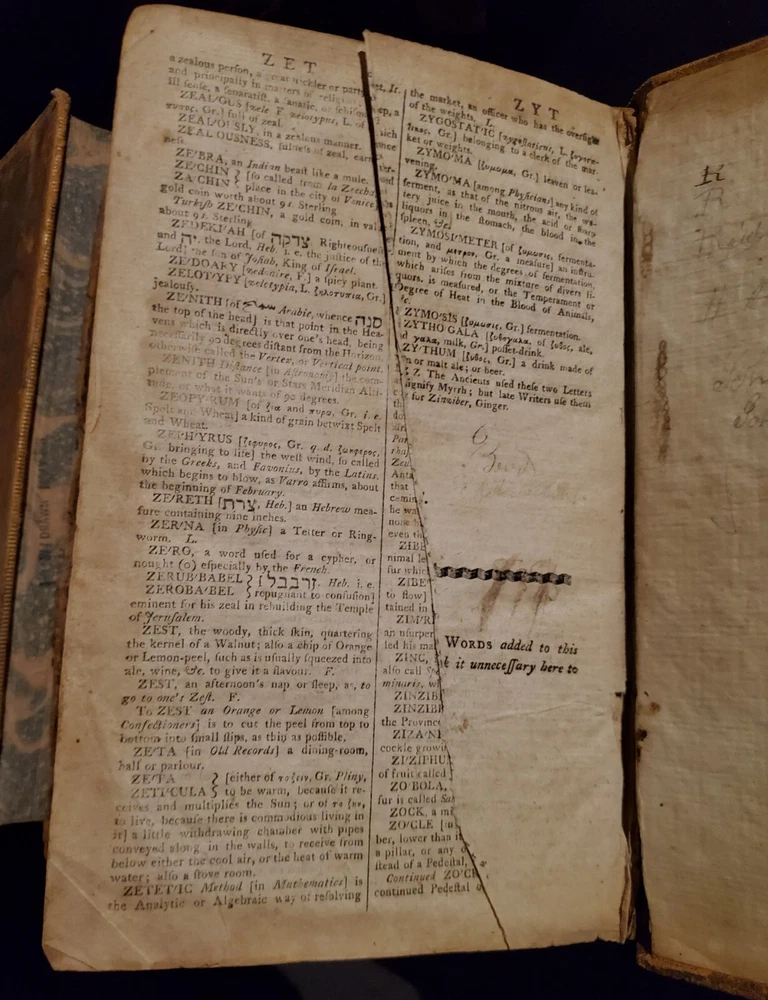 ZET
a zealous person, a great stickler or party
and principally in matters of religion
ill sense, a separatist, a fanatic, or schism
ZEAL'OUS [zele F. zelotypus, L. of
Gr.] full of zeal.
ZEAL'OUSLY, in a zealous manner.
ZEAL'OUSNESS, fulness of zeal, earn
ness.
ZE'BRA, an Indian beast like a mule.
ZE'CHIN } [so called from la Zeccha
ZA'CHIN } place in the city of Venice
gold coin worth about 9 s. Sterling
Turkish ZE'CHIN, a gold coin, in val
about 9 s. Sterling.
ZEDEKI'AH [of צדקה Righteousness
and יה, the Lord, Heb. i. e. the justice of the
Lord] the son of Josiah, King of Israel.
ZE'DOARY [zedoaire, F.] a spicy plant.
ZELOTYPY [zelotypia, L. ζηλοτυπια, Gr.]
jealousy.
ZE'NITH [of Arabic, whence סנה
the top of the head] is that point in the Hea-
vens which is directly over one's head, being
necessarily 90 degrees distant from the Horizon,
otherwise called the Vertex, or Vertical point.
ZENITH Distance [in Astronomy] the com-
plement of the Sun's or Stars Meridian Alti-
tude, or what it wants of 90 degrees.
ZEOPY'RUM [of ζια and πυρο, Gr. i. e.
Spelt and Wheat] a kind of grain betwixt Spelt
and Wheat.
ZEPH'YRUS [ζεφυρος, Gr. q. d. ζωηφορος,
Gr. bringing to life] the west wind, so called
by the Greeks, and Favonius, by the Latins,
which begins to blow, as Varro affirms, about
the beginning of February.
ZE'RETH [צרת, Heb.] an Hebrew mea-
sure containing nine inches.
ZER'NA [in Physic] a Tetter or Ring-
worm. L.
ZE'RO, a word used for a cypher, or
nought (0) especially by the French.
ZERUB'BABEL } [זרבבל Heb. i. e.
ZEROBA'BEL } repugnant to confusion]
eminent for his zeal in rebuilding the Temple
of Jerusalem.
ZEST, the woody, thick skin, quartering
the kernel of a Walnut; also a chip of Orange
or Lemon-peel, such as is usually squeezed into
ale, wine, &c. to give it a flavour. F.
ZEST, an afternoon's nap or sleep, as, to
go to one's Zest. F.
To ZEST an Orange or Lemon [among
Confectioners] is to cut the peel from top to
bottom into small slips, as thin as possible.
ZE'TA [in Old Records] a dining-room,
hall or parlour.
ZE'TA } [either of Gr. Pliny,
ZETI'CULA } to be warm, because it re-
ceives and multiplies the Sun; or of
to live, because there is commodious living in
it] a little withdrawing chamber with pipes
conveyed along in the walls, to receive from
below either the cool air, or the heat of warm
water; also a stove room.
ZETET'IC Method [in Mathematics] is
the Analytic or Algebraic way of resolving
ZYT
the market, an officer who has the oversight
of the weights. L.
ZYGOSTAT'IC
Gr.] belonging to a clerk of the mar-
ket or weights.
ZYMO'MA [ζυμομα, Gr.] leaven or lea-
vening.
ZYMO'MA [among Physicians] any kind of
ferment, as that of the nitrous air, the wa-
tery juice in the mouth, the acid or sharp
liquors in the stomach, the blood in the
spleen, &c.
ZYMOSI'METER [of ζυμωσις, fermenta-
tion, and μετρον, Gr. a measure] an instru-
ment by which the degrees of fermentation,
which arises from the mixture of divers li-
quors, is measured, or the Temperament or
Degree of Heat in the Blood of Animals,
&c.
ZYMO'SIS [ζυμωσις, Gr.] fermentation.
ZYTHO GALA [ζυθογαλα, of ζυθος, ale,
γαλα, milk, Gr.] posset-drink.
ZY'THUM [ζυθος, Gr.] a drink made of
or malt ale; or beer.
Z Z. The Ancients used these two Letters
signify Myrrh; but late Writers use them
for Zinziber, Ginger.
WORDS added to this
it unnecessary here to
that
he wa
even th
ZIBE
nimal le
fur whic
ZIBE
to flow]
tained in
ZIM'R
an usurper
led his ma
ZINC,
also call
minaris, w
ZINZIB
ZINZIBE
the Province
ZIZA'NI
cockle growi
ZI'ZIPHU
of fruit called
ZO'BOLA,
fur is called Sa
ZOCK, a mi
ZO'CLE [in
ber, lower than i
a pillar, or any
stead of a Pedestal,
Continued ZO'CL
continued Pedestal